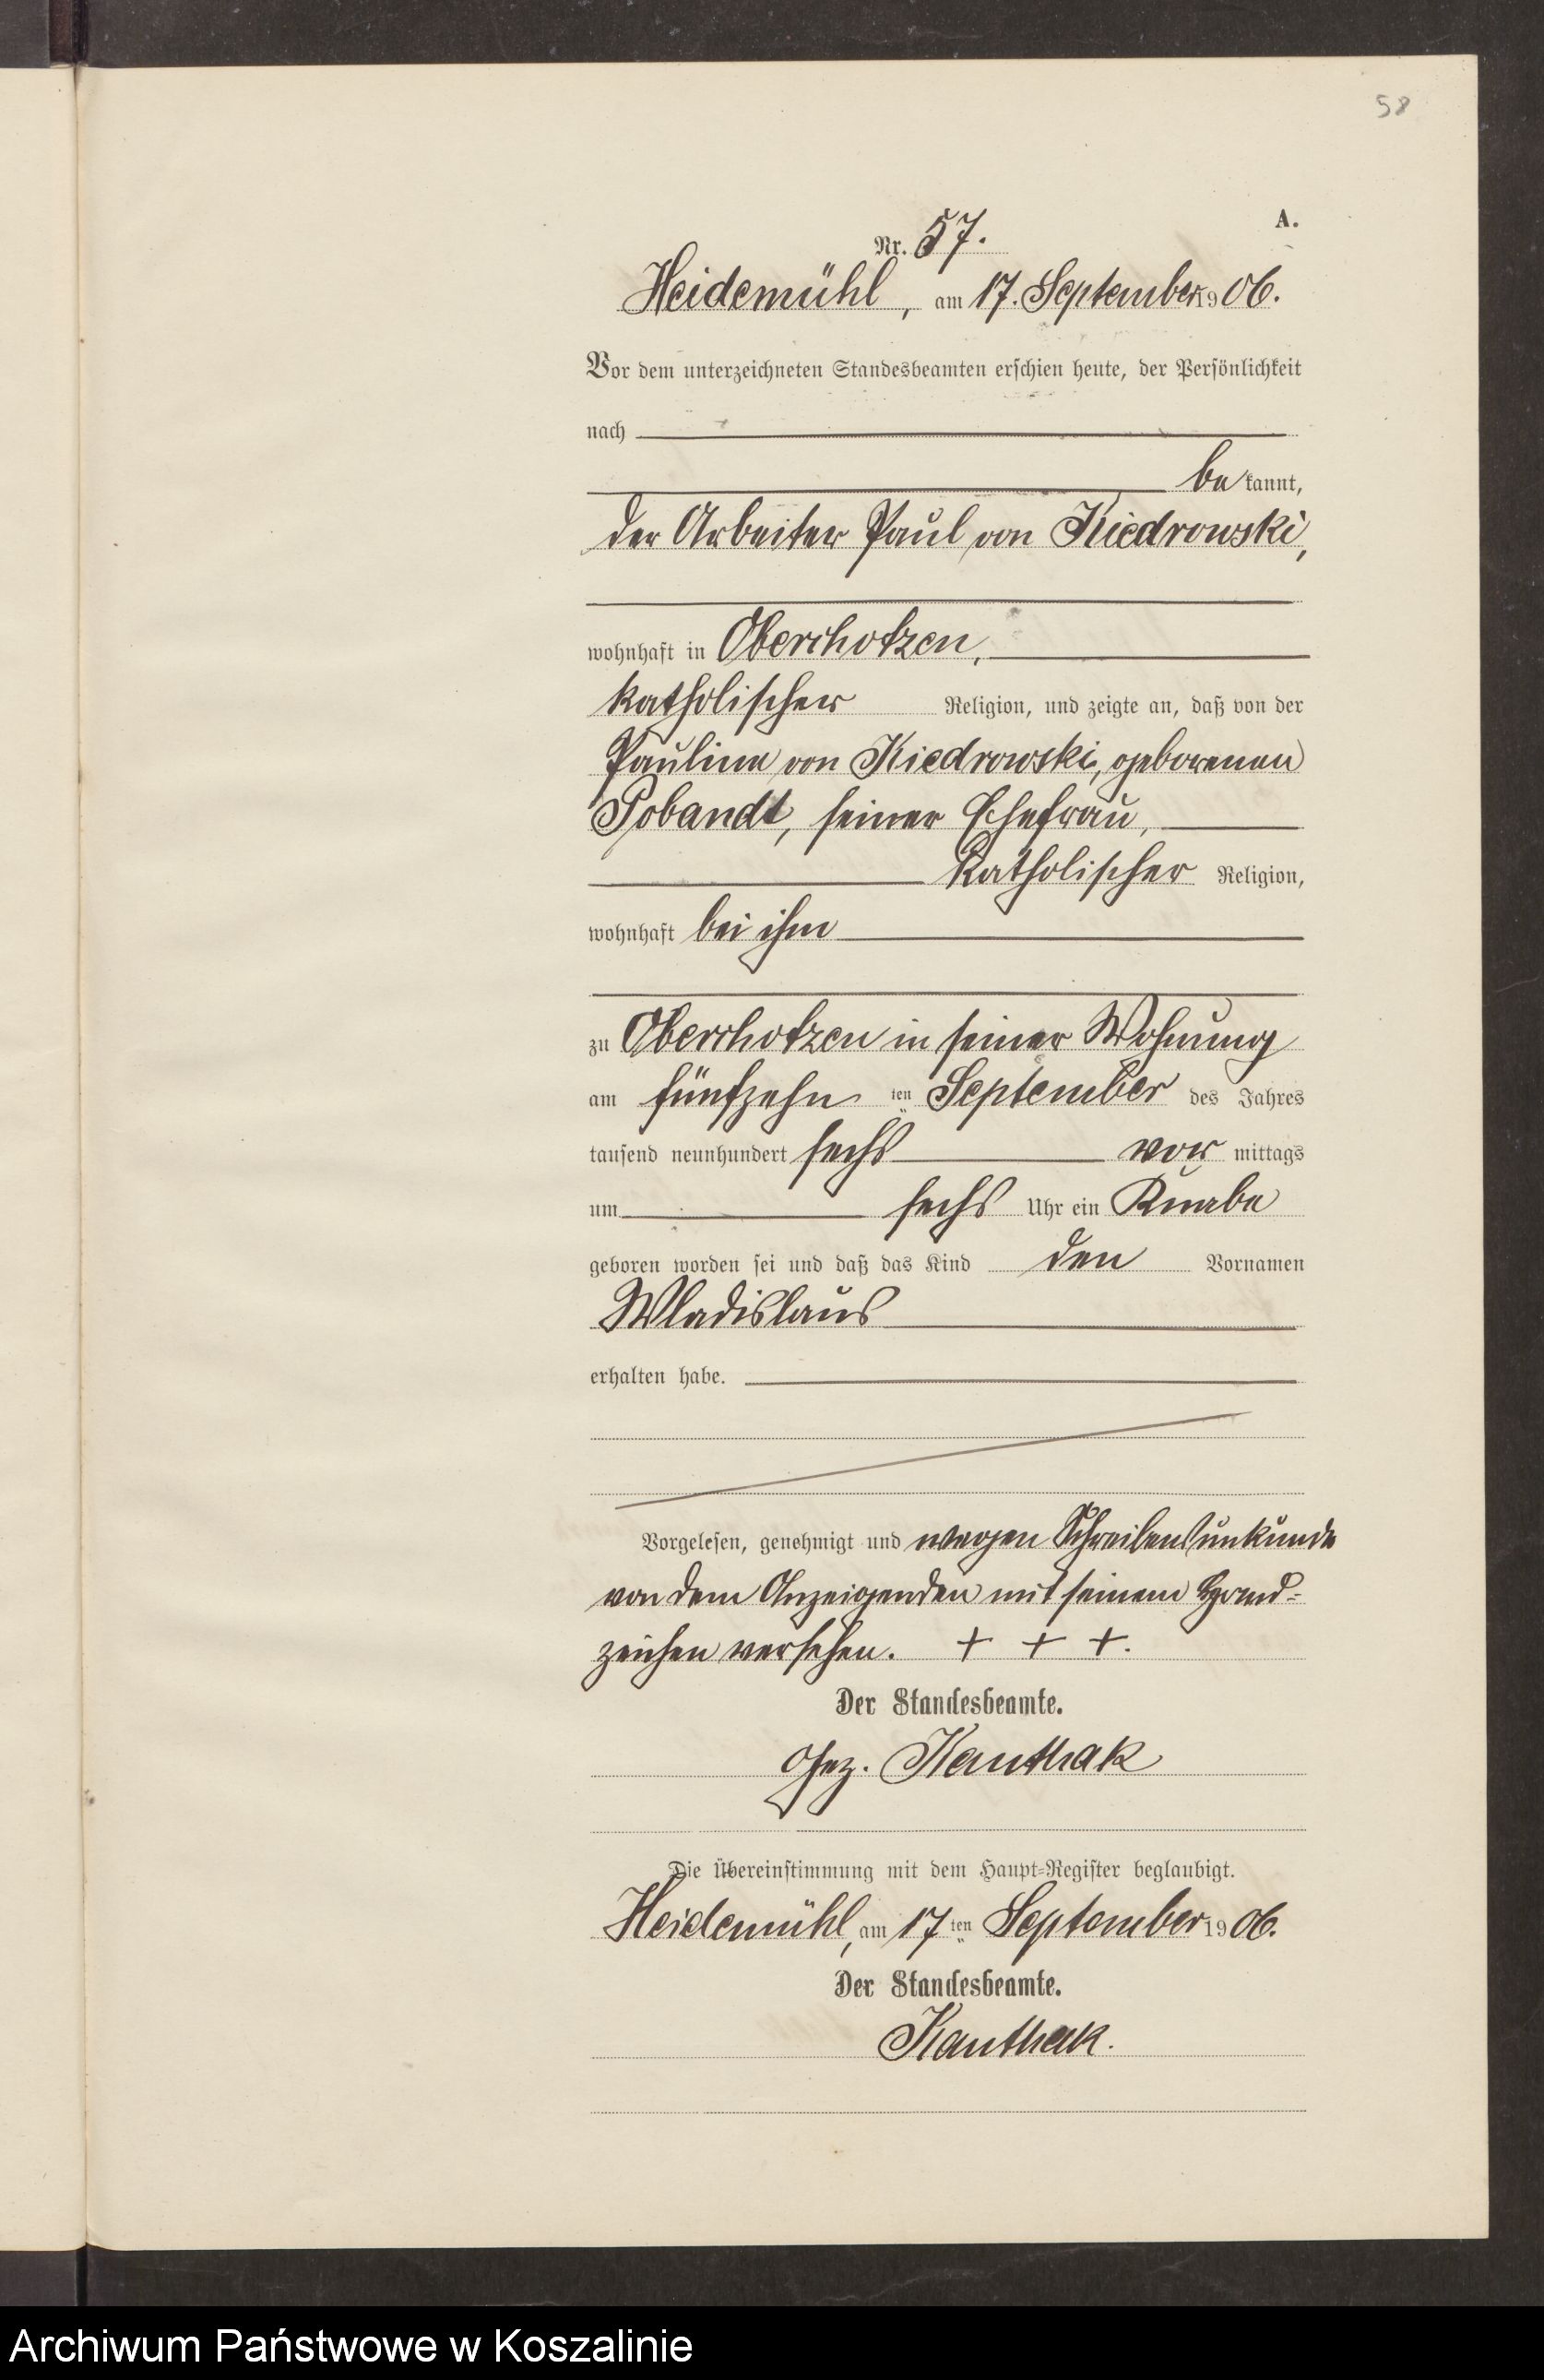 58
A.
Nr. 57.
Heidemühl, am 17. September 1906.
Vor dem unterzeichneten Standesbeamten erschien heute, der Persönlichkeit
nach
be kannt,
der Arbeiter Paul von Kiedrowski,
wohnhaft in Oberchotzen,
katholischer Religion, und zeigte an, daß von der
Pauline von Kiedrowski, geborenen
Pobandt, seiner Ehefrau,
katholischer Religion,
wohnhaft bei ihm
zu Oberchotzen in seiner Wohnung
am fünfzehn ten September des Jahres
tausend neunhundert sechs vor mittags
um sechs Uhr ein Knabe
geboren worden sei und daß das Kind den Vornamen
Wladislaus
erhalten habe.
Vorgelesen, genehmigt und wegen Schreibensunkunde
von dem Anzeigenden mit seinem Hand-
zeichen versehen. + + +.
Der Standesbeamte.
Gez. Kauthak
Die Übereinstimmung mit dem Haupt-Register beglaubigt.
Heidemühl, am 17 ten September 1906.
Der Standesbeamte.
Kauthak.
Archiwum Państwowe w Koszalinie